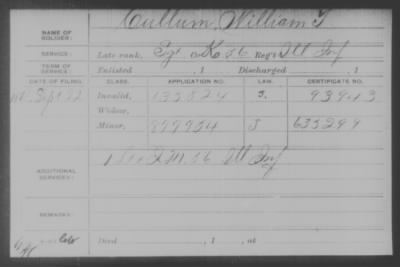 NAME OF SOLDIER: Cullum, William T
SERVICE: Late rank, Pvt Co K 56 Reg't Ill Inf
TERM OF SERVICE: Enlisted , 1 Discharged , 1
DATE OF FILING. CLASS. APPLICATION NO. LAW. CERTIFICATE NO.
Sept 22 Invalid, 133524 93943
Widow,
Minor, 899954 635299
ADDITIONAL SERVICE: 56 Ill Inf
REMARKS:
Died , 1 , at